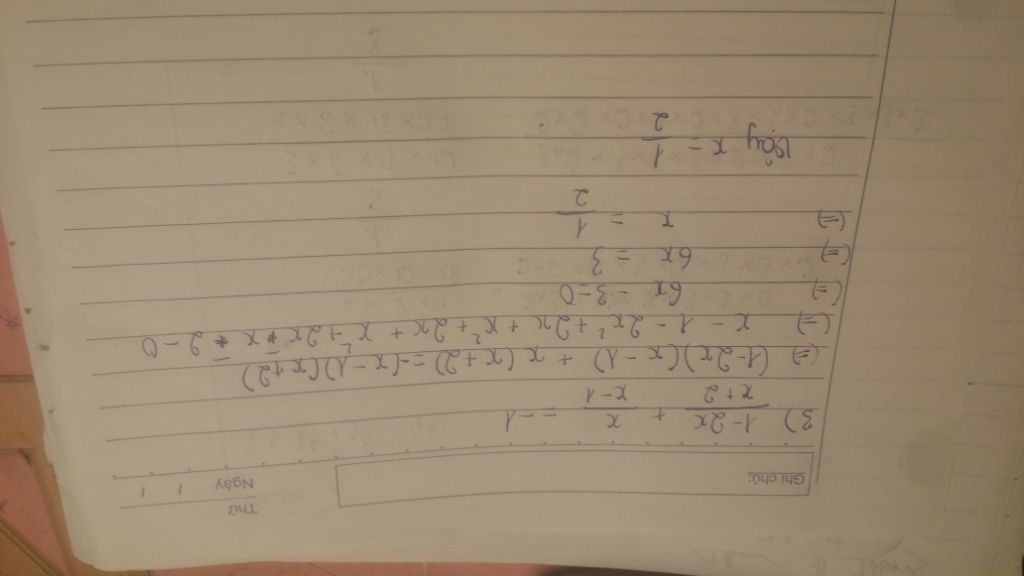 Thứ
Ngày / /
Ghi chú:
3) \frac{1-2x}{x+2} + \frac{x}{x-1} = -1
(=) (1-2x)(x-1) + x(x+2) = -(x-1)(x+2)
(=) x - 1 - 2x² + 2x + x² + 2x + x² + 2x - x - 2 = 0
(=) 6x - 3 = 0
(=) 6x = 3
(=) x = \frac{1}{2}
Vậy x = \frac{1}{2}